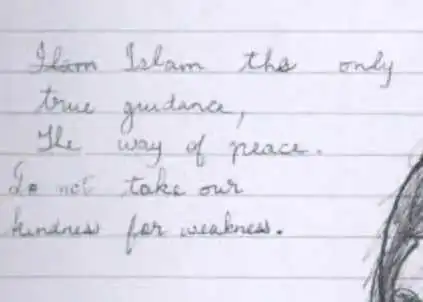 Islam Islam the only
true guidance,
The way of peace.
Do not take our
kindness for weakness.